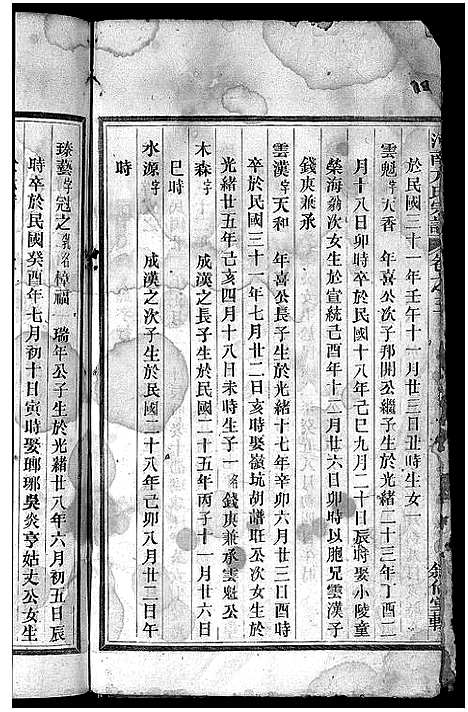 於民國三十一年壬午十一月廿三日丑時生女一
雲魁字天香　年喜公次子邦開公繼子生於光緒二十三年丁酉二
月十八日卯時卒於民國十八年己巳九月二十日辰時娶小陵童
榮海翁次女生於宣統己酉年十二月廿六日卯時以胞兄雲漢子
錢庚兼承
雲漢字天和　年喜公長子生於光緒十七年辛卯六月廿三日酉時
卒於民國三十一年七月廿二日亥時娶嶺坑胡譜旺公次女生於
光緒廿五年己亥四月十八日未時生子一名錢庚兼承雲魁公
木森字　成漢之長子生於民國二十五年丙子十一月廿六日
巳時
水源字　成漢之次子生於民國二十八年己卯八月廿二日午
時
臻藝字冠之乳名樟福　瑞年公子生於光緒廿八年六月初五日辰
時卒於民國癸酉年七月初十日寅時娶瑯琊吳炎亨姑丈公女生